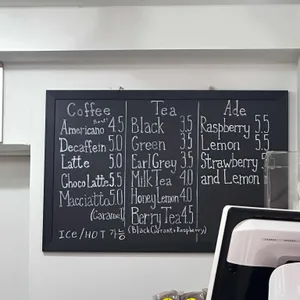 Coffee
Americano 4.5
Decaffein 5.0
Latte 5.0
Choco Latte 5.5
Macciatto 5.0
(Caramel)
ICE/HOT 가능
Tea
Black 3.5
Green 3.5
Earl Grey 3.5
Milk Tea 4.0
Honey Lemon 4.0
Berry Tea 4.5
(Black Currant+Raspberry)
Ade
Raspberry 5.5
Lemon 5.5
Strawberry 5
and Lemon